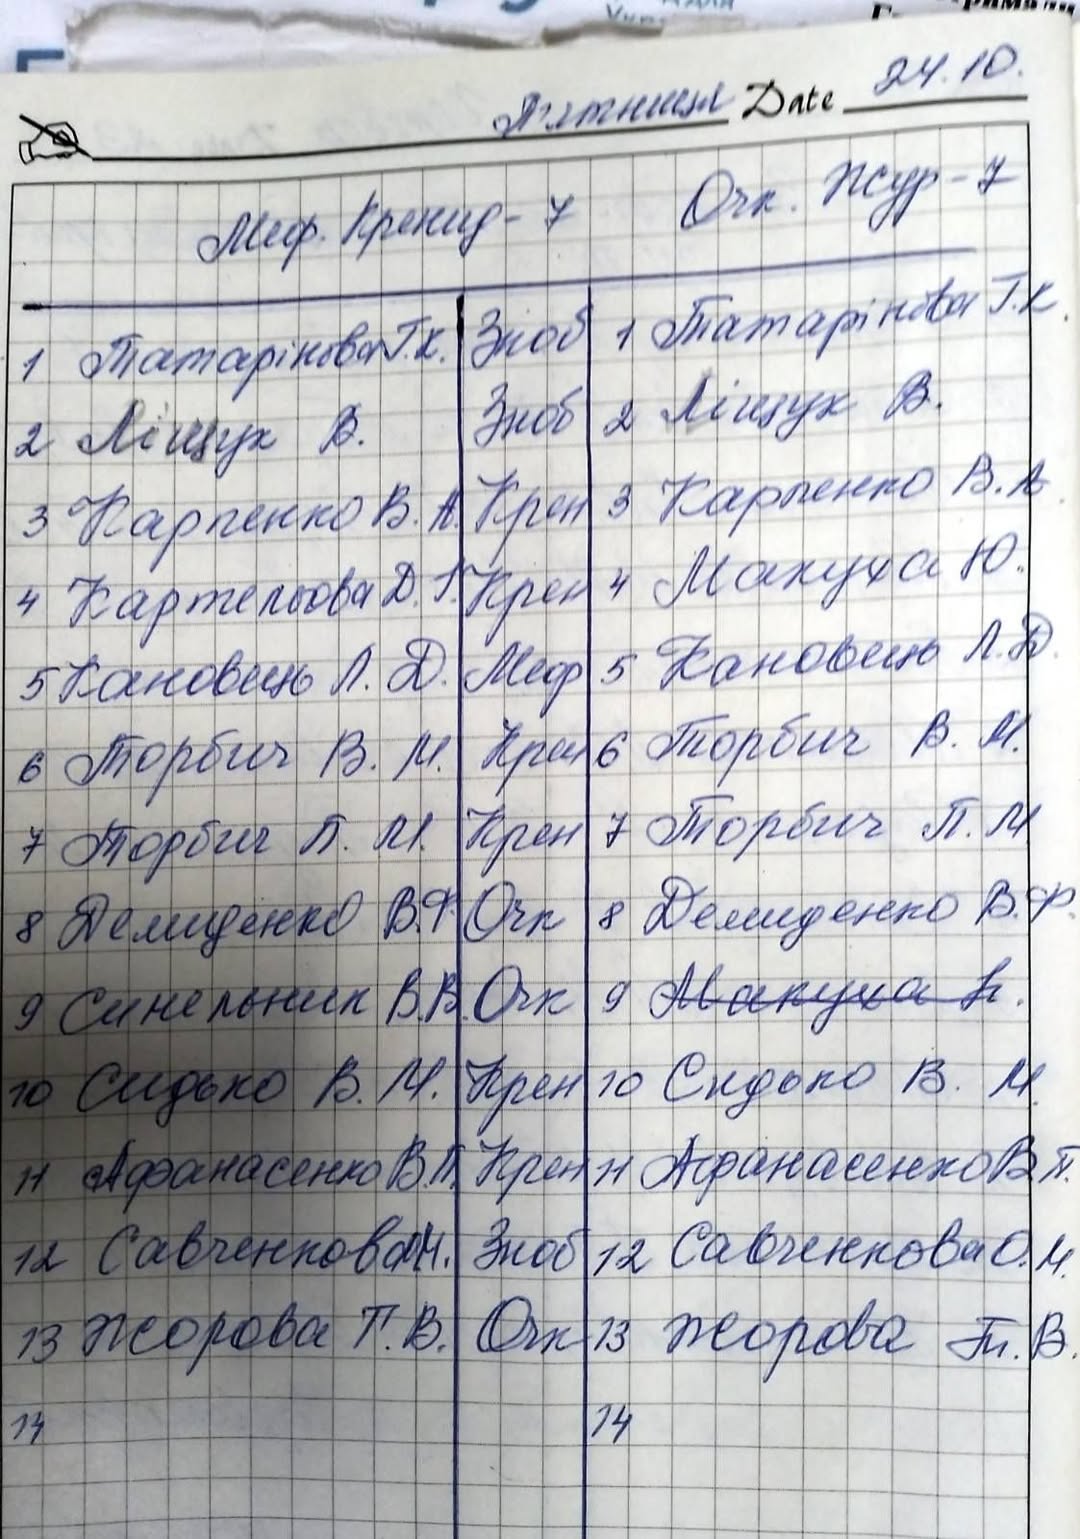 П'ятниця Date 24.10.
Меф. Кренид - 7 Очк. Жур - 7
1 Татарінова Г.К. Зноб 1 Татарінова Г.К.
2 Ліщук В. Зноб 2 Ліщук В.
3 Карпенко В.А. Крен 3 Карпенко В.А
4 Картельова Д.Г. Крен 4 Макуха Ю.
5 Кановець Л.Д. Меф 5 Кановець Л.Д.
6 Торбич В.М. Крен 6 Торбич В.М.
7 Торбич П.М. Крен 7 Торбич П.М
8 Демиденко В.Ф. Очк 8 Демиденко В.Ф.
9 Синельник В.В. Очк 9 Макуха
10 Сидько В.М. Крен 10 Сидько В.М.
11 Афанасенко В.П. Крен 11 Афанасенко В.П.
12 Савченкова Зноб 12 Савченкова О.М.
13 Жорова Т.В. Очк 13 Жорова Т.В.
14 14